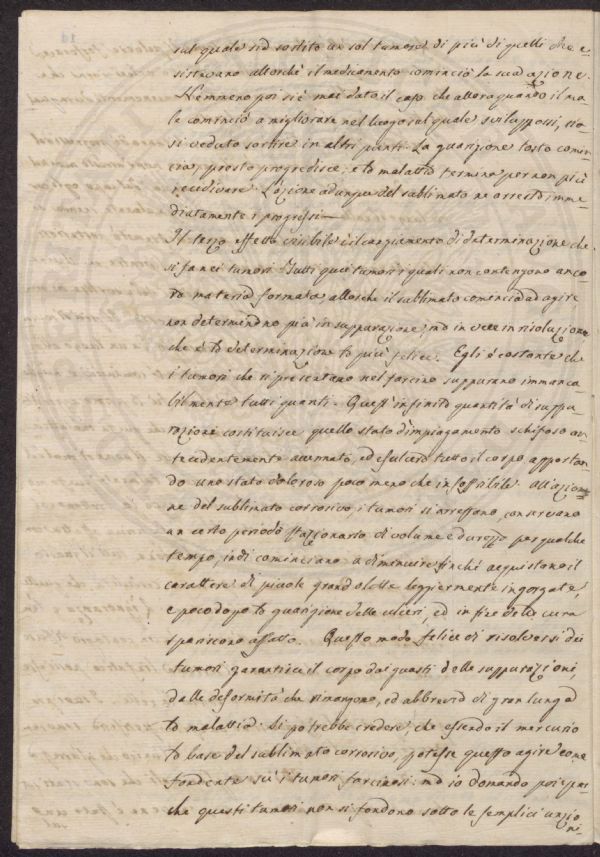 sul quale sia sortito un sol tumore di più di quelli che e-
sistevano allorchè il medicamento cominciò la sua azione.
Nemmeno poi si è mai dato il caso che allora quando il ma-
le cominciò a migliorare nel luogo sul quale sviluppossi, sia-
si veduto sortire in altri punti. La guarigione tosto comin-
cia, presto progredisce, e la malattia termina per non più
recidivare. L'azione adunque del sublimato ne arresta imme-
diatamente i progressi —
Il terzo effetto visibile è il cangiamento di determinazione che
si fa nei tumori. Tutti quei tumori i quali non contengono anco-
ra materia formata allorchè il sublimato comincia ad agire
non determinano più in suppurazione, ma in vece in risoluzione
che è la determinazione la più felice. Egli è costante che
i tumori che si presentano nel farcino suppurano immanca-
bilmente tutti quanti. Quest'infinita quantità di suppu-
razione costituisce quello stato d'impiagamento schifoso an-
tecedentemente accennato, ed esulcera tutto il corpo apportan-
do uno stato doloroso poco meno che insoffribile. All'azio-
ne del sublimato corrosivo, i tumori si arrestano, conservano
un certo periodo stazionario di volume e durezza per qualche
tempo, indi cominciano a diminuire finchè acquistano il
carattere di picciole grandolette leggiermente ingorgate,
e poco dopo la guarigione delle ulceri, ed in fine della cura
spariscono affatto. Questo modo felice di risolversi dei
tumori garantisce il corpo dai guasti delle suppurazioni,
dalle deformità che rimangono, ed abbrevia di gran lunga
la malattia. Si potrebbe credere, che essendo il mercurio
la base del sublimato corrosivo, potesse questo agire come
fondente su i tumori farcinosi: ma io domando poi per-
che questi tumori non si fondono sotto le semplici unzio-
ni